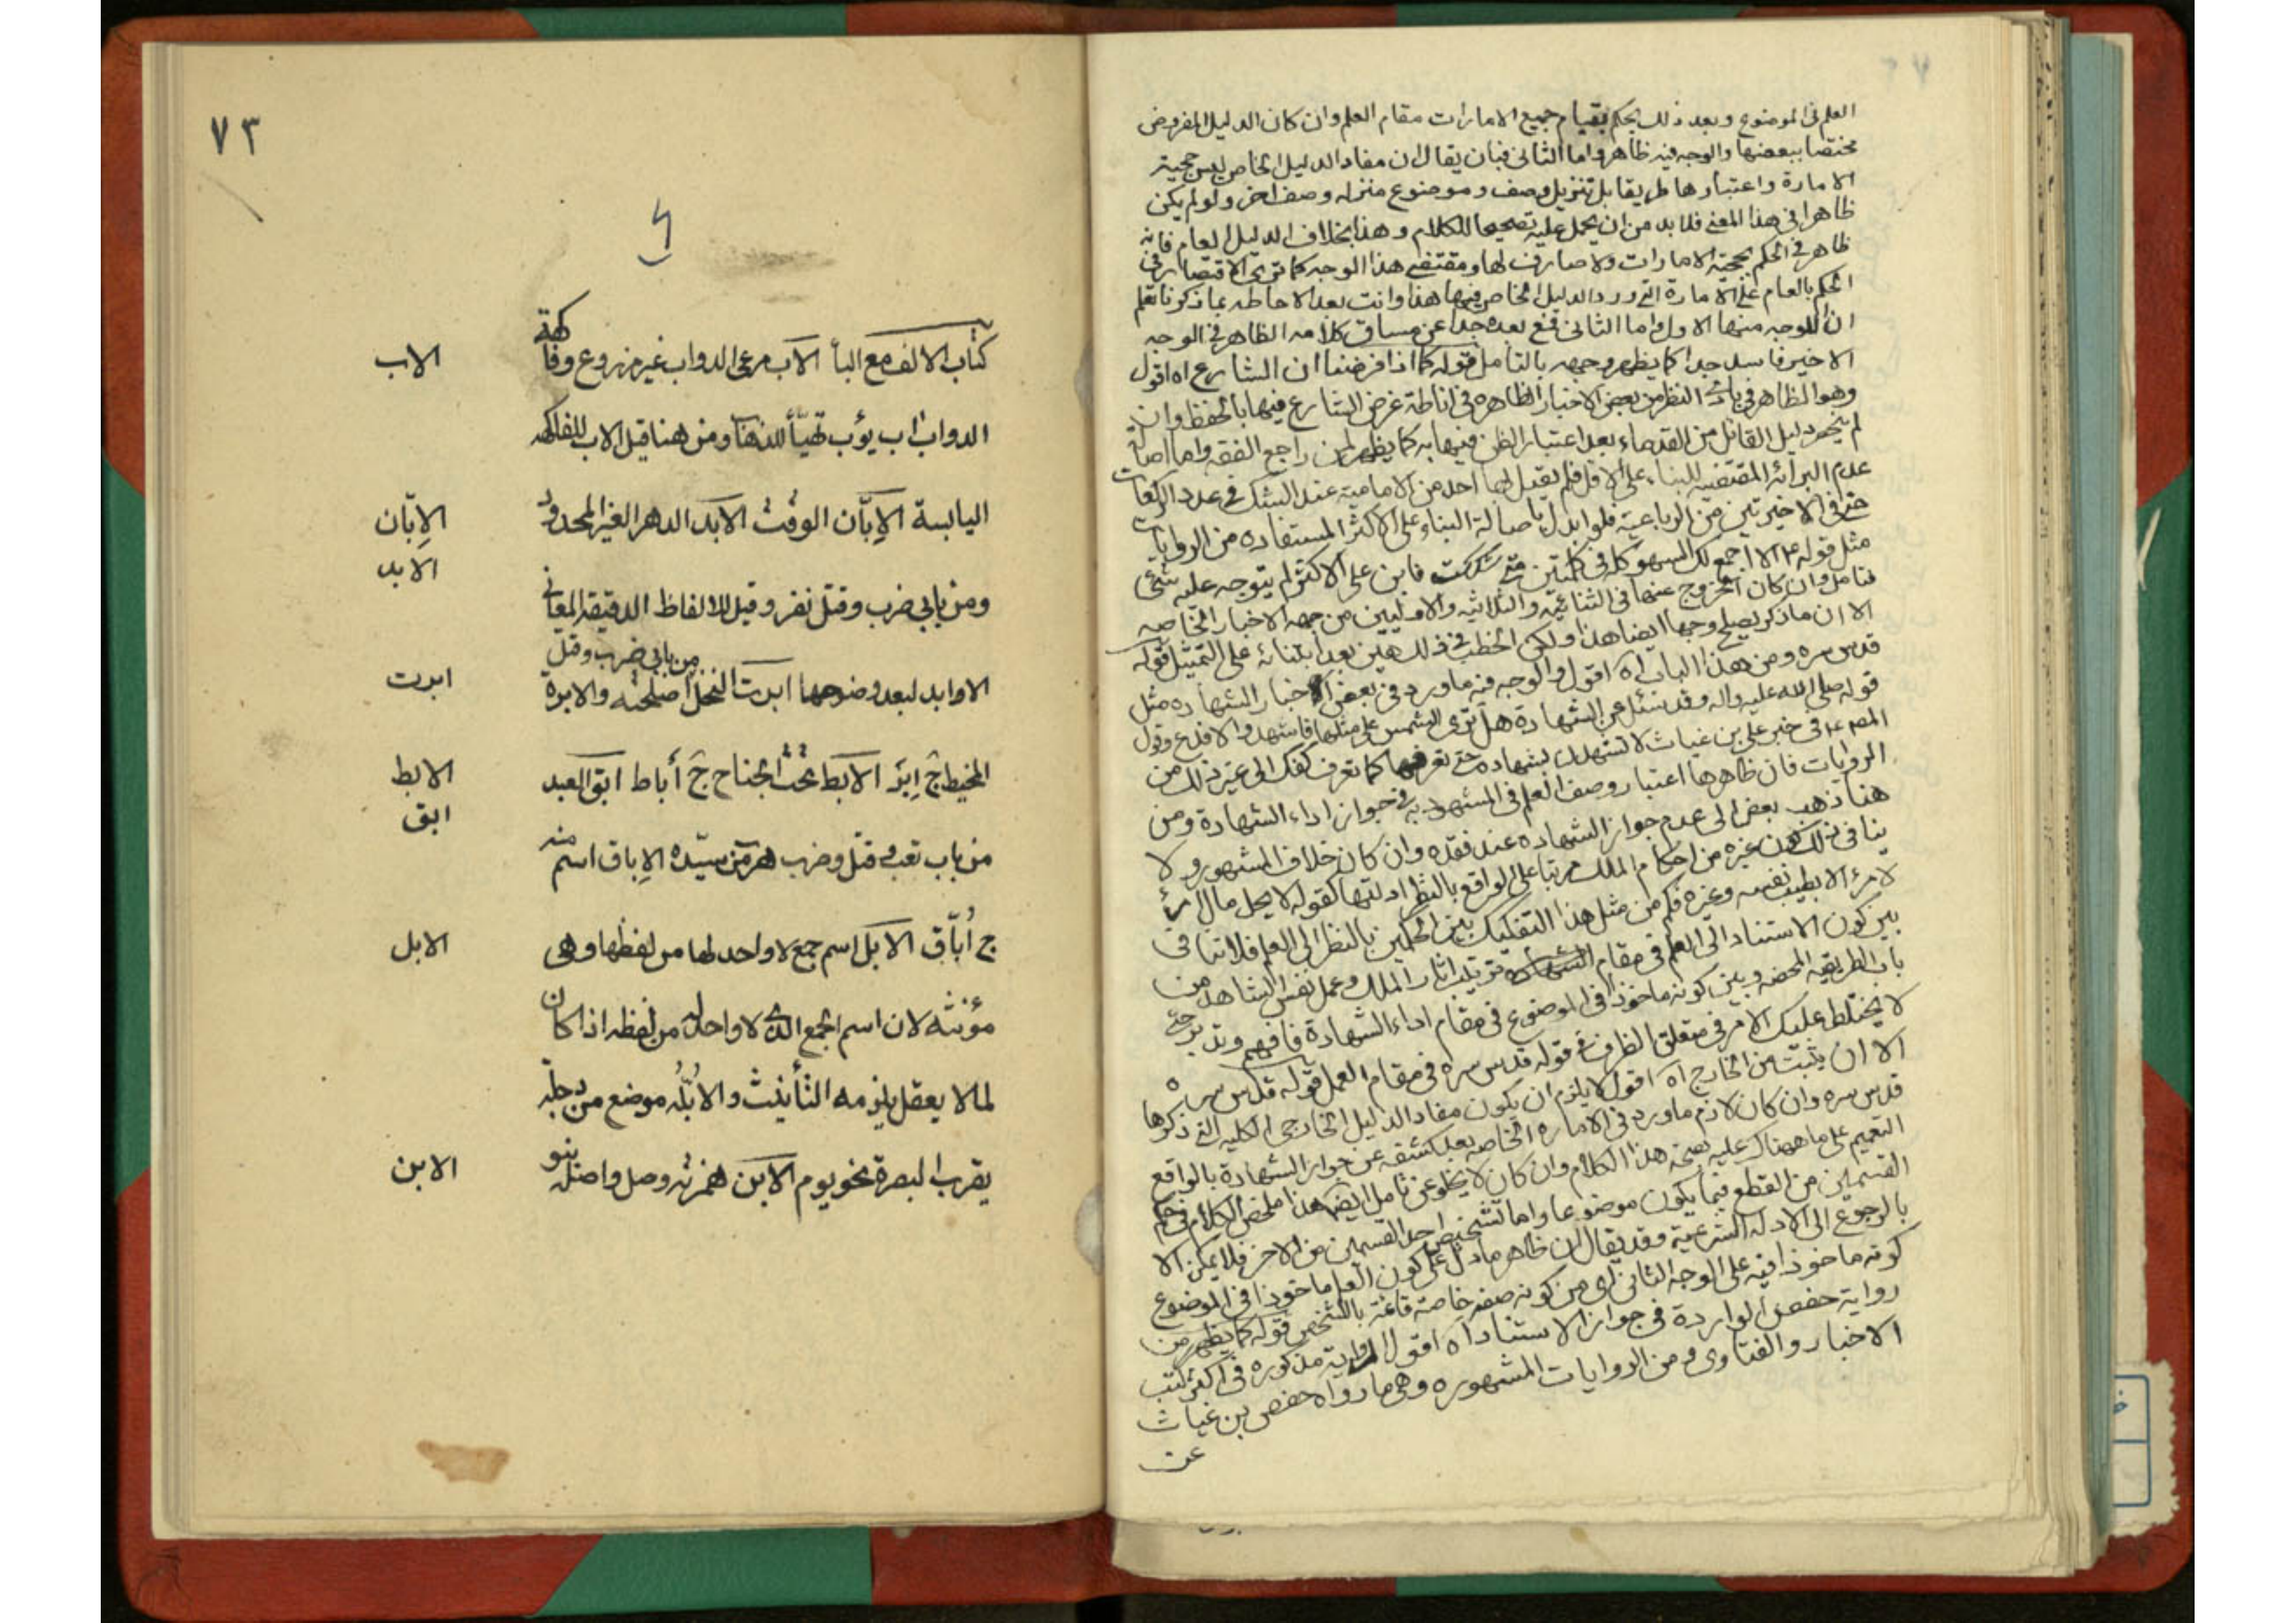 العلم فى الموضوع وبعد ذلك يحكم بقيام جميع الامارات مقام العلم وان كان الدليل المفروض
مختصا ببعضها والوجه فيه ظاهر واما الثانى فبان يقال ان مفاد الدليل الخاص ليس حجية
الامارة واعتبارها طريقا بل تنزيل وصف وموضوع منزله وصف اخر ولو لم يكن
ظاهرا فى هذا المعنى فلابد من ان يحمل عليه تصحيحا للكلام وهذا بخلاف الدليل العام فانه
ظاهر فى الحكم بحجية الامارات ولا صارف لها ومقتضى هذا الوجه كما ترى الاقتصار فى
الحكم بالعام على الامارة التى ورد الدليل الخاص فيها هذا وانت بعد الاحاطه بما ذكرنا تعلم
ان الوجه منها الاول واما الثانى فمع بعده جدا عن مساق كلامه الظاهر فى الوجه
الاخير فاسد جدا كما يظهر وجهه بالتأمل قوله كما اذا فرضنا ان الشارع اه اقول
وهو الظاهر فى بادى النظر من بعض الاخبار الظاهره فى اناطة غرض الشارع فيها بالحفظ وان
لم ينحصر دليل القائل من القدماء بعد اعتبار الظن فيها به كما يظهر لمن راجع الفقه واما اصالة
عدم البرائه المقتضيه للبناء على الاقل فلم يقل بها احد من الاماميه عند الشك فى عدد الركعات
حتى فى الاخيرتين من الرباعية فلو ابدل باصالة البناء على الاكثر المستفاده من الروايات
مثل قوله ع الا اجمع لك السهو كله فى كلمتين متى شككت فابن على الاكثر لم يتوجه عليه شئ
فتامل وان كان الخروج عنها فى الثنائيه والثلاثيه والاوليين من جهه الاخبار الخاصه
الا ان ما ذكر يصلح وجها ايضا هذا ولكن الخطب فى ذلك هين بعد ابتنائه على التمثيل قوله
قدس سره ومن هذا الباب اه اقول والوجه فيه ما ورد فى بعض الاخبار الشهاده مثل
قوله صلى الله عليه واله وقد سئل عن الشهادة هل ترى الشمس على مثلها فاشهد والا فدع وقول
المص ع فى خبر على بن غياث لا تشهدن بشهاده حتى تعرفها كما تعرف كفك الى غير ذلك من
الروايات فان ظاهرها اعتبار وصف العلم فى المشهود به فى جواز اداء الشهادة ومن
هنا ذهب بعض الى عدم جواز الشهاده عند فقده وان كان خلاف المشهور ولا
ينافى ذلك كون غيره من احكام الملك مرتبا على الواقع بالنظر ادلتها كقوله لا يحل مال امرئ
لامرء الا بطيب نفسه وغيره فكم من مثل هذا التفكيك بين الحكمين بالنظر الى العلم فلا تنافى
بين كون الاستناد الى العلم فى مقام ترتيب اثار الملك وعمل نفس الشاهد من
باب الطريقيه المحضه وبين كونه ماخوذا فى الموضوع فى مقام اداء الشهادة فافهم وتدبر حتى
لا يختلط عليك الامر فى متعلق الظرف فى قوله قدس سره فى مقام العمل قوله قدس سره
الا ان يثبت من الخارج اه اقول لا يلزم ان يكون مفاد الدليل الخارجى الكليه التى ذكرها
قدس سره وان كان لازم ما ورد فى الاماره الخاصه بعد كشفه عن جواز الشهادة بالواقع
التعميم على ما هناك عليه بصحة هذا الكلام وان كان لا يخلو عن تامل ايضا هذا ملخص الكلام فى حكم
القسمين من القطع فيما يكون موضوعا واما تشخيص احد القسمين من الاخر فلا يمكن الا
بالرجوع الى الادله الشرعية وقد يقال ان ظاهر ما دل على كون العلم ماخوذا فى الموضوع
كونه ماخوذا فيه على الوجه الثانى اى من كونه صفه خاصة قائمة بالشخص قوله كما يظهر من
رواية حفص الواردة فى جواز الاستناد اه اقول الرواية مذكوره فى اكثر كتب
الاخبار والفتاوى ومن الروايات المشهوره وهى ما رواه حفص بن غياث
عن
٧٣
كتاب الالف مع البأ الاب مرعى الدواب غير مزروع وفاكهة
الاب
الدواب اب يؤب تهيّأ للذهاب ومن هنا قيل الاب للفاكهه
اليابسة الاِبّان الوقت الابد الدهر الغير المحدود
الاِبّان
الابد
ومن بابى ضرب وقتل نفر وقيل للالفاظ الدقيقه المعانى
الاوابد لبعد وضوحها ابرت النخل من بابى ضرب وقتل اصلحته والابرة
ابرت
المخيط ج اِبَر الابط تحت الجناح ج أباط ابق العبد
الابط
ابق
من باب تعب وقتل وضرب هرب من سيّده الاِباق اسم منه
ج اُبّاق الابل اسم جمع لا واحد لها من لفظها وهى
الابل
مؤنثه لان اسم الجمع الذى لا واحد له من لفظه اذا كان
لما لا يعقل يلزمه التأنيث والاُبُلّه موضع من دجلة
يقرب البصرة نحو يوم الابن همزته وصل واصله بنو
الابن